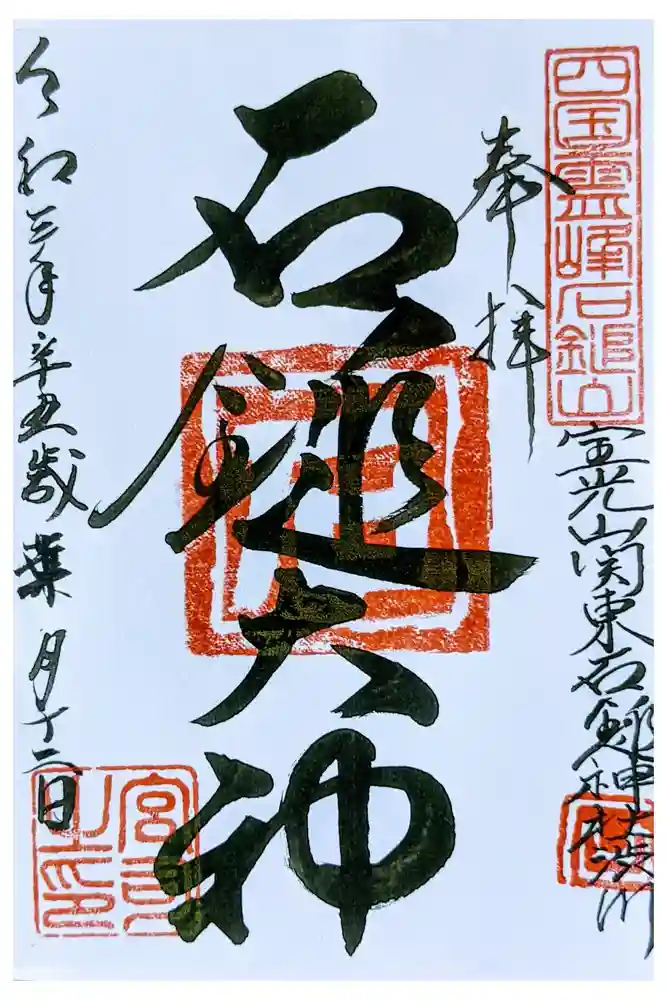 四国霊峰石鎚山
奉拝
宝光山関東石鎚神社
石鎚大神
令和三年辛丑歳葉月十二日
宮司之印